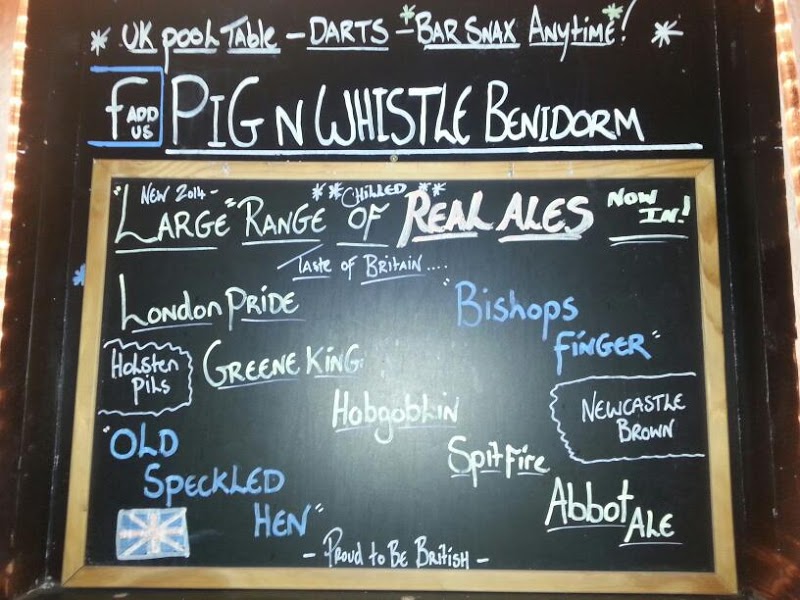 * UK Pool Table - Darts - *Bar Snax Anytime*! *
F ADD US PIG N WHISTLE BENIDORM
"NEW 2014 -
**CHILLED**
LARGE" RANGE OF REAL ALES NOW IN!
Taste of Britain....
London Pride
"Bishops Finger"
Holsten Pils
Greene King
Hobgoblin
Newcastle Brown
"OLD SPECKLED HEN"
Spitfire
Abbot Ale
- Proud to Be British -